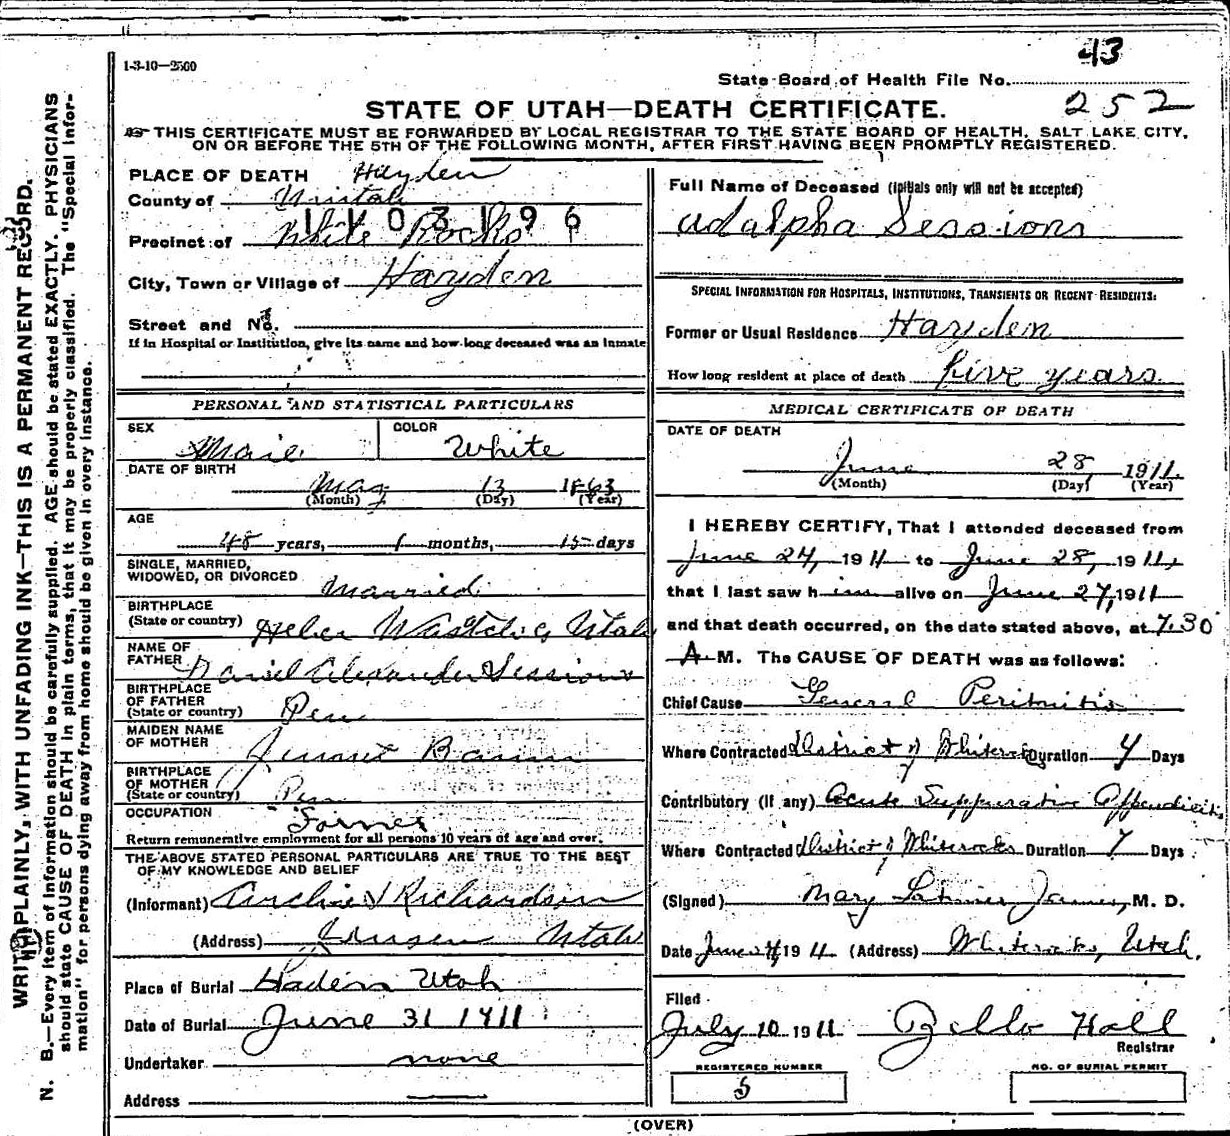 43
1-3-10—2500
State Board of Health File No.
252
STATE OF UTAH—DEATH CERTIFICATE.
THIS CERTIFICATE MUST BE FORWARDED BY LOCAL REGISTRAR TO THE STATE BOARD OF HEALTH, SALT LAKE CITY,
ON OR BEFORE THE 5TH OF THE FOLLOWING MONTH, AFTER FIRST HAVING BEEN PROMPTLY REGISTERED.
WRITE PLAINLY, WITH UNFADING INK—THIS IS A PERMANENT RECORD.
N. B.—Every item of information should be carefully supplied. AGE should be stated EXACTLY. PHYSICIANS
should state CAUSE OF DEATH in plain terms, that it may be properly classified. The "Special Infor-
mation" for persons dying away from home should be given in every instance.
PLACE OF DEATH Hayden
County of Uintah
Precinct of White Rocks
City, Town or Village of Hayden
Street and No.
If in Hospital or Institution, give its name and how long deceased was an inmate
PERSONAL AND STATISTICAL PARTICULARS
SEX Male COLOR White
DATE OF BIRTH
May 13 1863
(Month) (Day) (Year)
AGE
48 years, 1 months, 15 days
SINGLE, MARRIED,
WIDOWED, OR DIVORCED Married
BIRTHPLACE
(State or country) Heber Wastch Co Utah
NAME OF
FATHER Daniel Alexander Sessions
BIRTHPLACE
OF FATHER
(State or country) Pen
MAIDEN NAME
OF MOTHER
BIRTHPLACE
OF MOTHER
(State or country) Pen
OCCUPATION Farmer
Return remunerative employment for all persons 10 years of age and over.
THE ABOVE STATED PERSONAL PARTICULARS ARE TRUE TO THE BEST
OF MY KNOWLEDGE AND BELIEF
(Informant) Richardson
(Address) Jensen Utah
Place of Burial Utah
Date of Burial June 31 1911
Undertaker none
Address
Full Name of Deceased (Initials only will not be accepted)
Adalpha Sessions
SPECIAL INFORMATION FOR HOSPITALS, INSTITUTIONS, TRANSIENTS OR RECENT RESIDENTS:
Former or Usual Residence Hayden
How long resident at place of death five years
MEDICAL CERTIFICATE OF DEATH
DATE OF DEATH
June 28, 1911.
(Month) (Day) (Year)
I HEREBY CERTIFY, That I attended deceased from
June 24, 1911 to June 28, 1911,
that I last saw him alive on June 27, 1911
and that death occurred, on the date stated above, at 7.30
A M. The CAUSE OF DEATH was as follows:
Chief Cause General Peritonitis
Where Contracted District of Whiterocks Duration 4 Days
Contributory (if any) Acute Suppurative Appendicitis
Where Contracted District of Whiterocks Duration 7 Days
(Signed) Mary Latimer James, M. D.
Date June 1911 (Address) Whiterocks, Utah.
Filed
July 10 1911 Zello Hall
Registrar
REGISTERED NUMBER
5
NO. OF BURIAL PERMIT
(OVER)